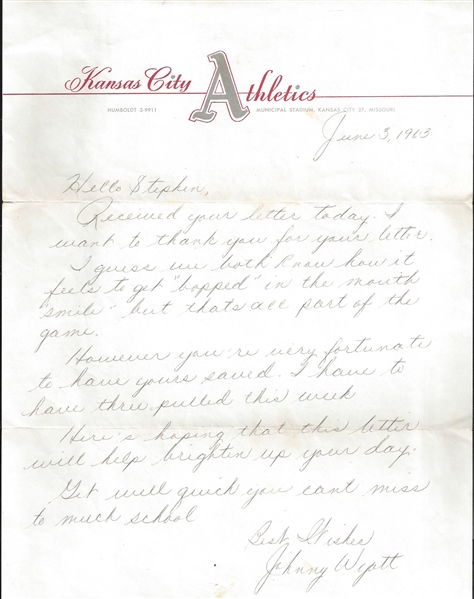 Kansas City Athletics
HUMBOLDT 2-9911 MUNICIPAL STADIUM, KANSAS CITY 27, MISSOURI
June 3, 1963
Hello Stephen,
Received your letter today. I
want to thank you for your letter.
I guess we both know how it
feels to get "bopped" in the mouth
"smile" but thats all part of the
game.
However you're very fortunate
to have yours saved. I have to
have three pulled this week
Here's hoping that this letter
will help brighten up your day.
Get well quick you cant miss
to much school
Best Wishes
Johnny Wyatt